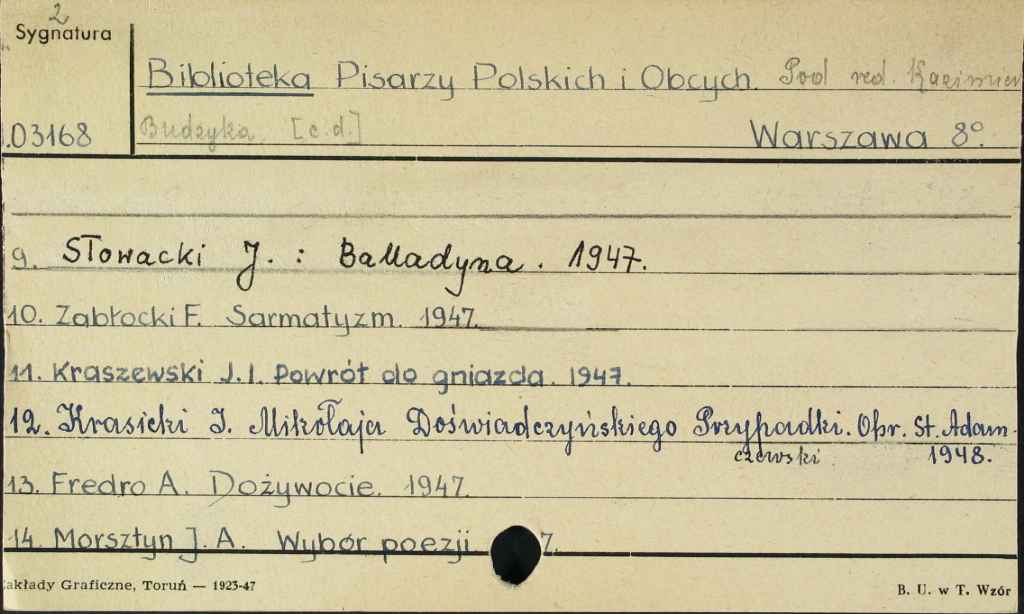 2
Sygnatura
Biblioteka Pisarzy Polskich i Obcych. Pod red. Kazimier
.03168 Budzyka [c.d.] Warszawa 8º.
9. Słowacki J. : Balladyna. 1947.
10. Zabłocki F. Sarmatyzm. 1947.
11. Kraszewski J.I. Powrót do gniazda. 1947.
12. Krasicki I. Mikołaja Doświadczyńskiego Przypadki. Opr. St. Adam-
czewski 1948.
13. Fredro A. Dożywocie. 1947.
14. Morsztyn J.A. Wybór poezji 7.
akłady Graficzne, Toruń — 1923-47 B. U. w T. Wzór